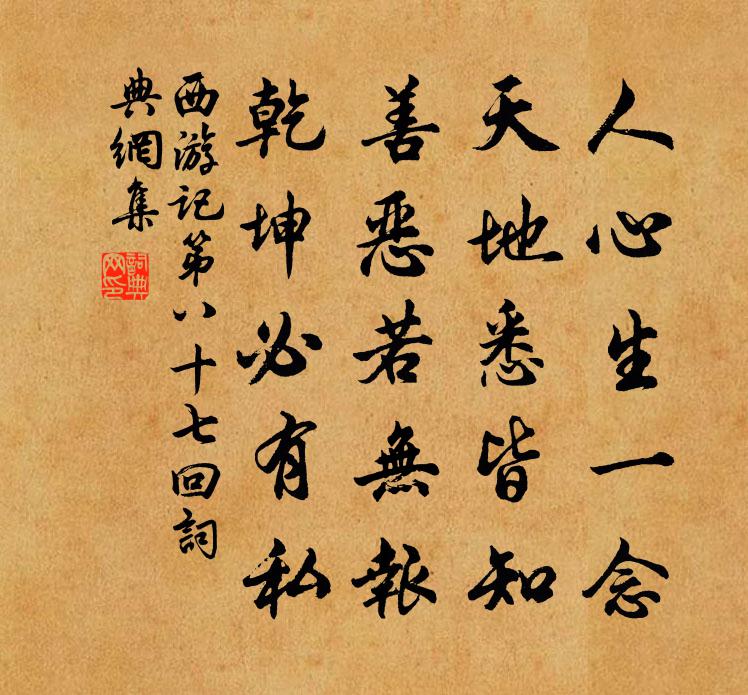 人心生一念
天地悉皆知
善惡若無報
乾坤必有私
西游记第八十七回詞
典網集
詞典
网印